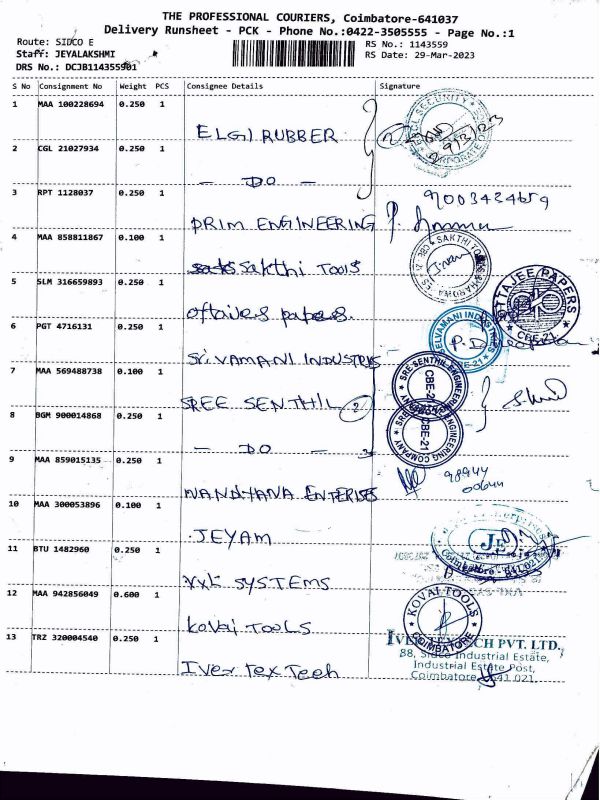 THE PROFESSIONAL COURIERS, Coimbatore-641037
Delivery Runsheet - PCK - Phone No.:0422-3505555 - Page No.:1
Route: SIDCO E
Staff: JEYALAKSHMI
DRS No.: DCJB114355901
RS No.: 1143559
RS Date: 29-Mar-2023
S No Consignment No Weight PCS Consignee Details Signature
1 MAA 100228694 0.250 1 ELGI RUBBER
2 CGL 21027934 0.250 1 - DO -
3 RPT 1128037 0.250 1 PRIM ENGINEERING 9003424659
4 MAA 858811867 0.100 1 Sakthi TOOLS
5 SLM 316659893 0.250 1
6 PGT 4716131 0.250 1 INDUSTRIES
7 MAA 569488738 0.100 1 SREE SENTHIL 2
8 BGM 900014868 0.250 1 - DO -
9 MAA 859015135 0.250 1 NANDHANA ENTERISES 98944 00644
10 MAA 300053896 0.100 1 JEYAM
11 BTU 1482960 0.250 1 SYSTEMS
12 MAA 942856049 0.600 1 Kovai TOOLS
13 TRZ 320004540 0.250 1 Iver Tex Tech
SECURITY
SAKTHI
PAPERS
CBE-21
INDUSTRIES
SRE SENTHIL ENGINEERING COMPANY
CBE-21
SRE SENTHIL ENGINEERING COMPANY
CBE-21
JE
Coimbatore - 641 021
KOVAI TOOLS
COIMBATORE
PVT. LTD.
88, Sidco Industrial Estate,
Industrial Estate Post,
Coimbatore 641 021